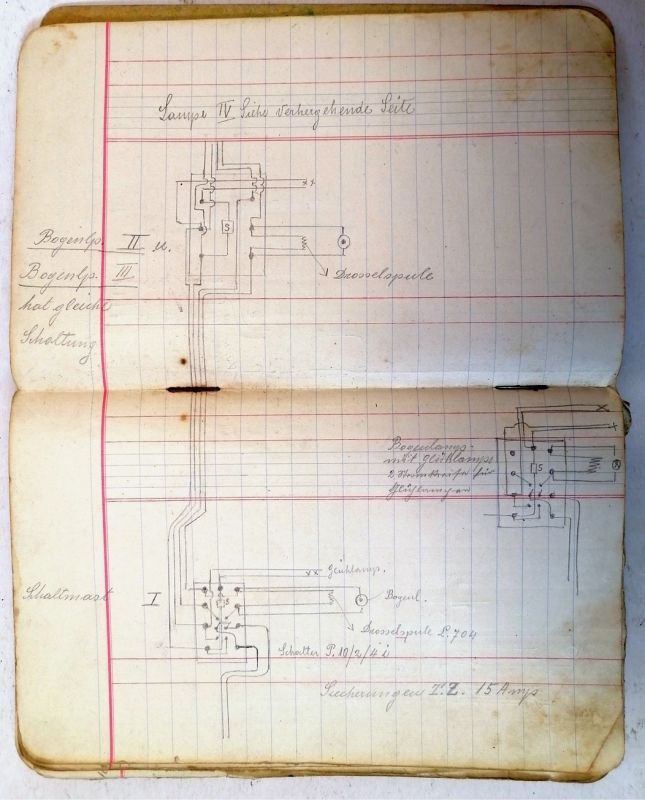 Lampe IV Siehe Vorhergehende Seite
xx
S
Bogenlp. II u.
Bogenlp. III
hat gleiche
Schaltung
Drosselspule
Bogenlamp-
mit Glühlampe
2 Stromkreise für
Glühlampen
S
Schaltmast I
xx Glühlamp.
S
Bogenl.
Drosselspule L. 704
Schalter P. 10/2/4 i
Sicherungen II. Z. 15 Amp